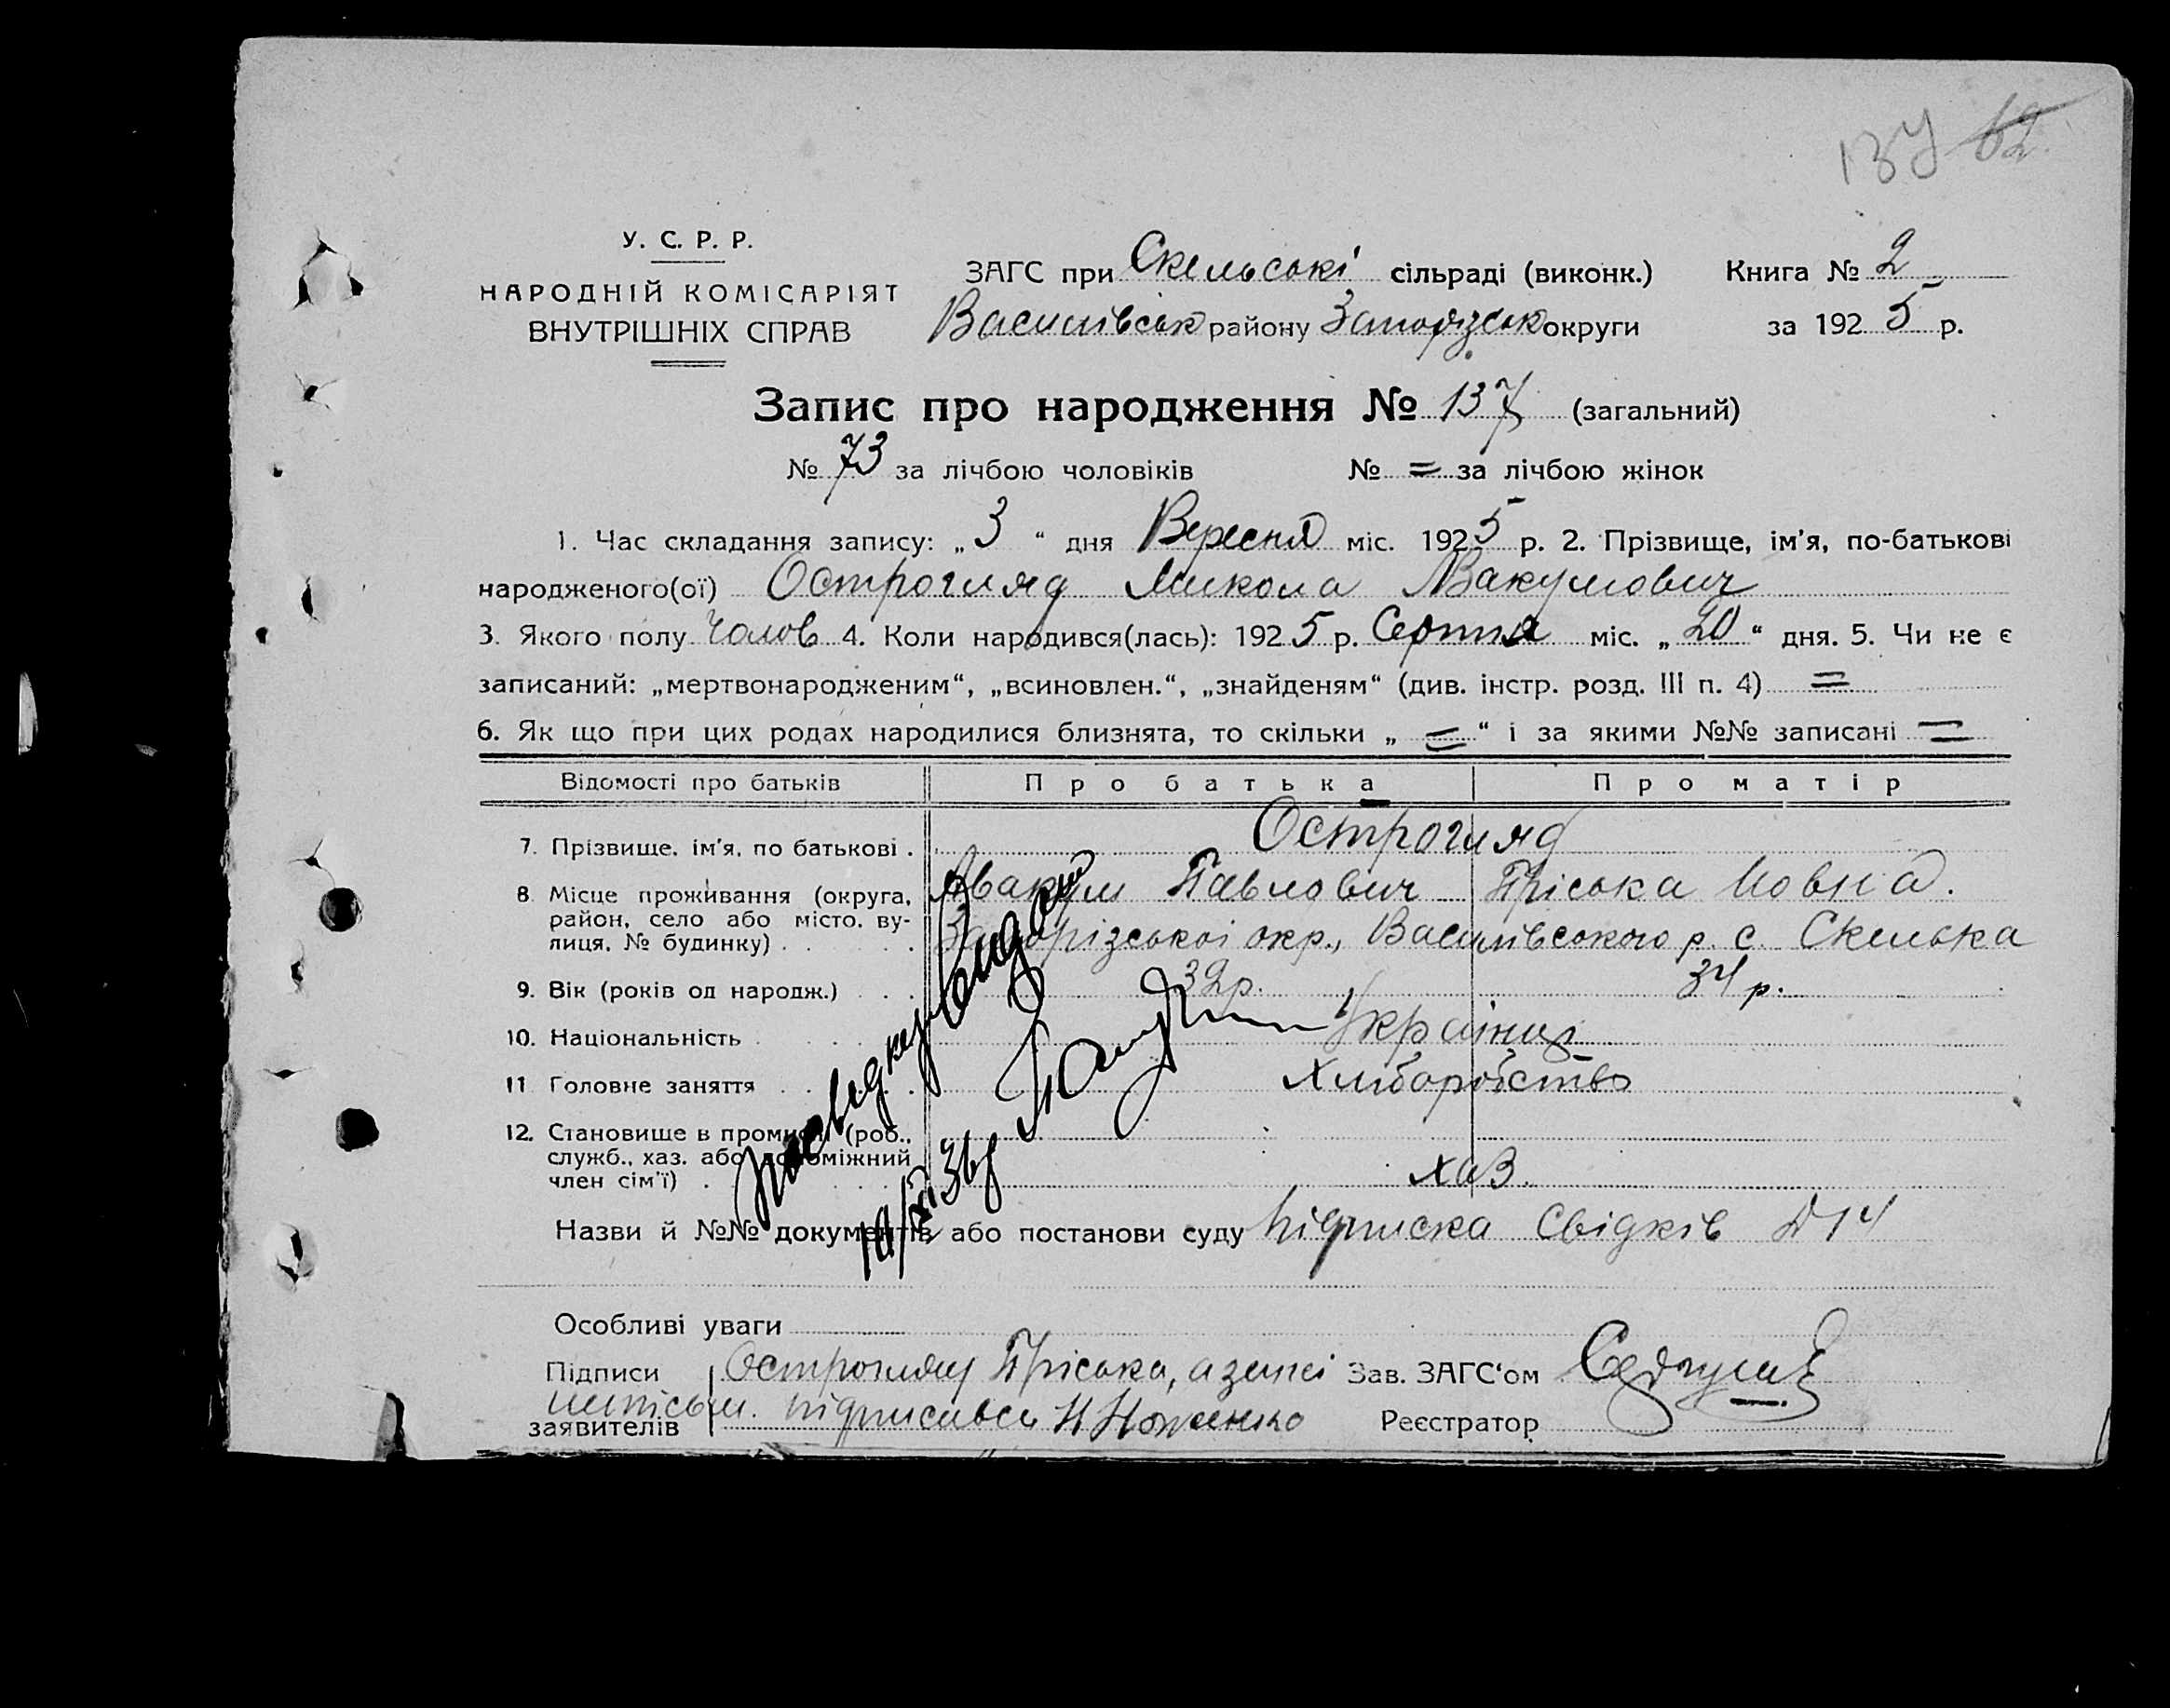 137 62
У. С. Р. Р.
НАРОДНІЙ КОМІСАРІЯТ
ВНУТРІШНІХ СПРАВ
ЗАГС при Скельські сільраді (виконк.) Книга № 2
Василівськ району Запорізьк округи за 1925 р.
Запис про народження № 137 (загальний)
№ 73 за лічбою чоловіків № = за лічбою жінок
1. Час складання запису: „3“ дня Вересня міс. 1925 р. 2. Прізвище, ім'я, по-батькові
народженого(ої) Острогляд Микола Авакумович
3. Якого полу Чолов 4. Коли народився(лась): 1925 р. Серпня міс. „20“ дня. 5. Чи не є
записаний: „мертвонародженим“, „всиновлен.“, „знайденям“ (див. інстр. розд. III п. 4) =
6. Як що при цих родах народилися близнята, то скільки „=“ і за якими №№ записані =
Відомості про батьків Про батька Про матір
7. Прізвище, ім'я, по батькові . Острогляд
Авакум Павлович Пріська Іовна.
8. Місце проживання (округа,
район, село або місто, ву-
лиця, № будинку) . . . Запорізської окр., Василівського р. с. Скелька
9. Вік (років од народж.) . . . 32 р. 34 р.
10. Національність . . . Українці
11. Головне заняття . . . Хліборобство
12. Становище в промислі (роб.,
служб., хаз. або допоміжний
член сім'ї) . хаз.
Назви й №№ документів або постанови суду підписка свідків №14
Особливі уваги
Підписи заявителів Острогляд Пріська, а за неї Зав. ЗАГС'ом
неписьм. підписався Н Ноженко Реєстратор